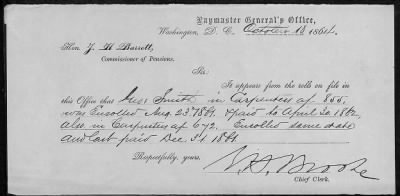 Paymaster General's Office,
Washington, D. C., October 18 1864.
Hon. J H Barrett,
Commissioner of Pensions.
Sir:
It appears from the rolls on file in
this Office that Smith, in Carpenters of
was Enrolled Aug 23" 1861. & paid to April 30. 186
also in Carpenters of 672. Enrolled same date
and last paid Dec 31 1861.
Respectfully, yours,
Chief Clerk.